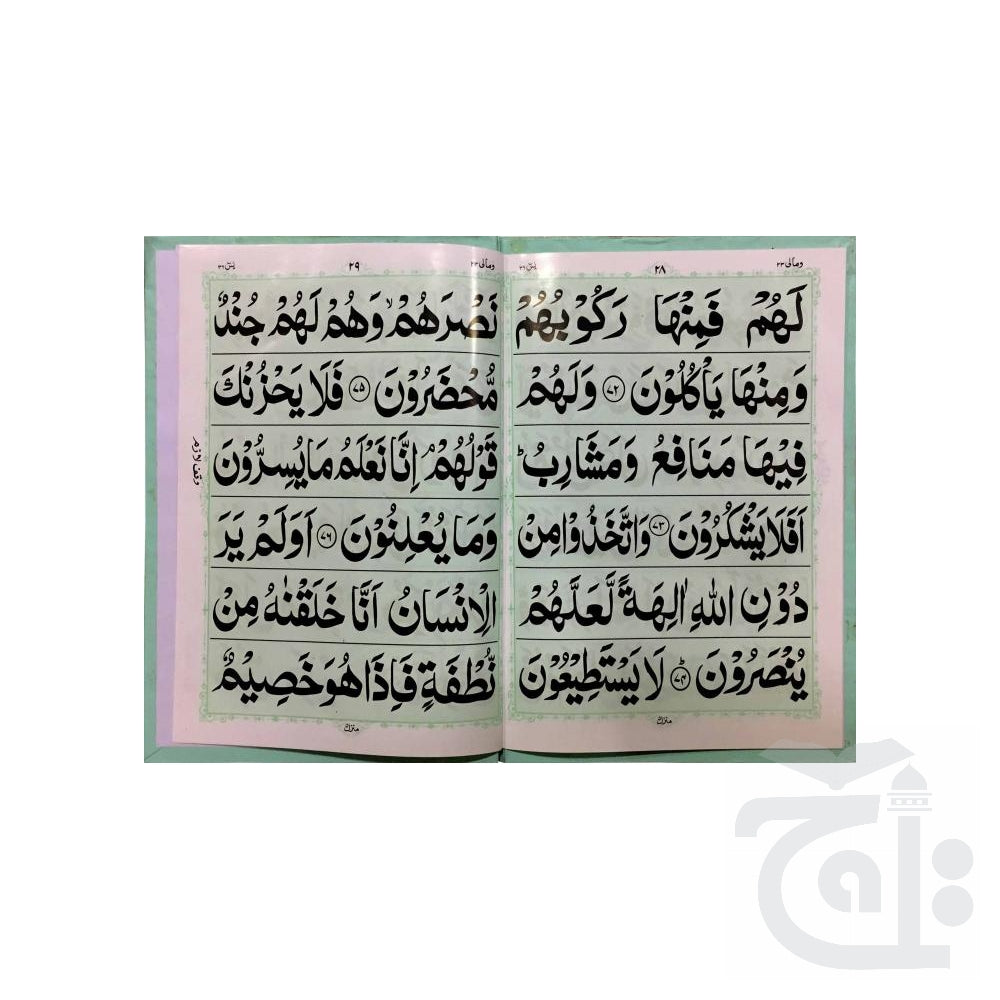 ومالی ۲۳
۲۸
یٰسٓ ۳۶
لَهُمْ فَمِنْهَا رَكُوْبُهُمْ
وَمِنْهَا يَاْكُلُوْنَ ۝۷۲ وَلَهُمْ
فِيْهَا مَنَافِعُ وَمَشَارِبُ ؕ
اَفَلَا يَشْكُرُوْنَ ۝۷۳ وَاتَّخَذُوْا مِنْ
دُوْنِ اللّٰهِ اٰلِهَةً لَّعَلَّهُمْ
يُنْصَرُوْنَ ؕ۝۷۴ لَا يَسْتَطِيْعُوْنَ
منزل
ومالی ۲۳
۲۹
یٰسٓ ۳۶
نَصْرَهُمْ ۙ وَهُمْ لَهُمْ جُنْدٌ
مُّحْضَرُوْنَ ۝۷۵ فَلَا يَحْزُنْكَ
قَوْلُهُمْ ۘ اِنَّا نَعْلَمُ مَا يُسِرُّوْنَ
وقف لازم
وَمَا يُعْلِنُوْنَ ۝۷۶ اَوَلَمْ يَرَ
الْاِنْسَانُ اَنَّا خَلَقْنٰهُ مِنْ
نُّطْفَةٍ فَاِذَا هُوَ خَصِيْمٌ
منزل